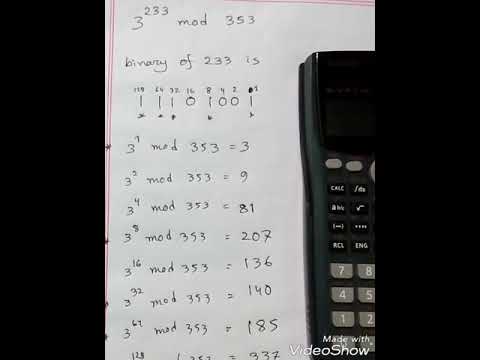 3^233 mod 353
binary of 233 is
128 64 32 16 8 4 2 1
1 1 1 0 1 0 0 1
* * * * *
* 3^1 mod 353 = 3
3^2 mod 353 = 9
3^4 mod 353 = 81
* 3^8 mod 353 = 207
3^16 mod 353 = 136
* 3^32 mod 353 = 140
* 3^64 mod 353 = 185
128 353 = 337
CALC ∫dx
a b/c √
(---) °'"
RCL ENG
7 8
4 5
1 2
0
Made with
VideoShow